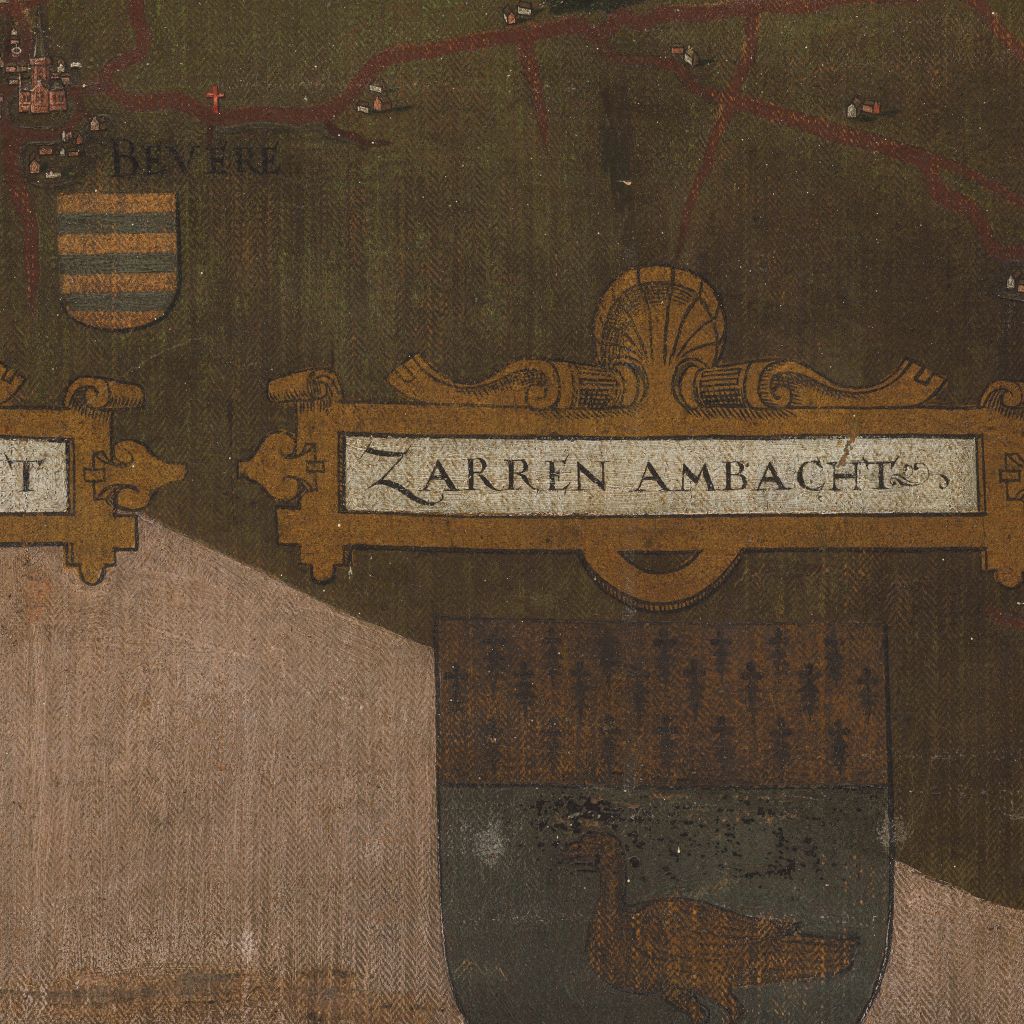 BEVERE
T
ZARREN AMBACHT